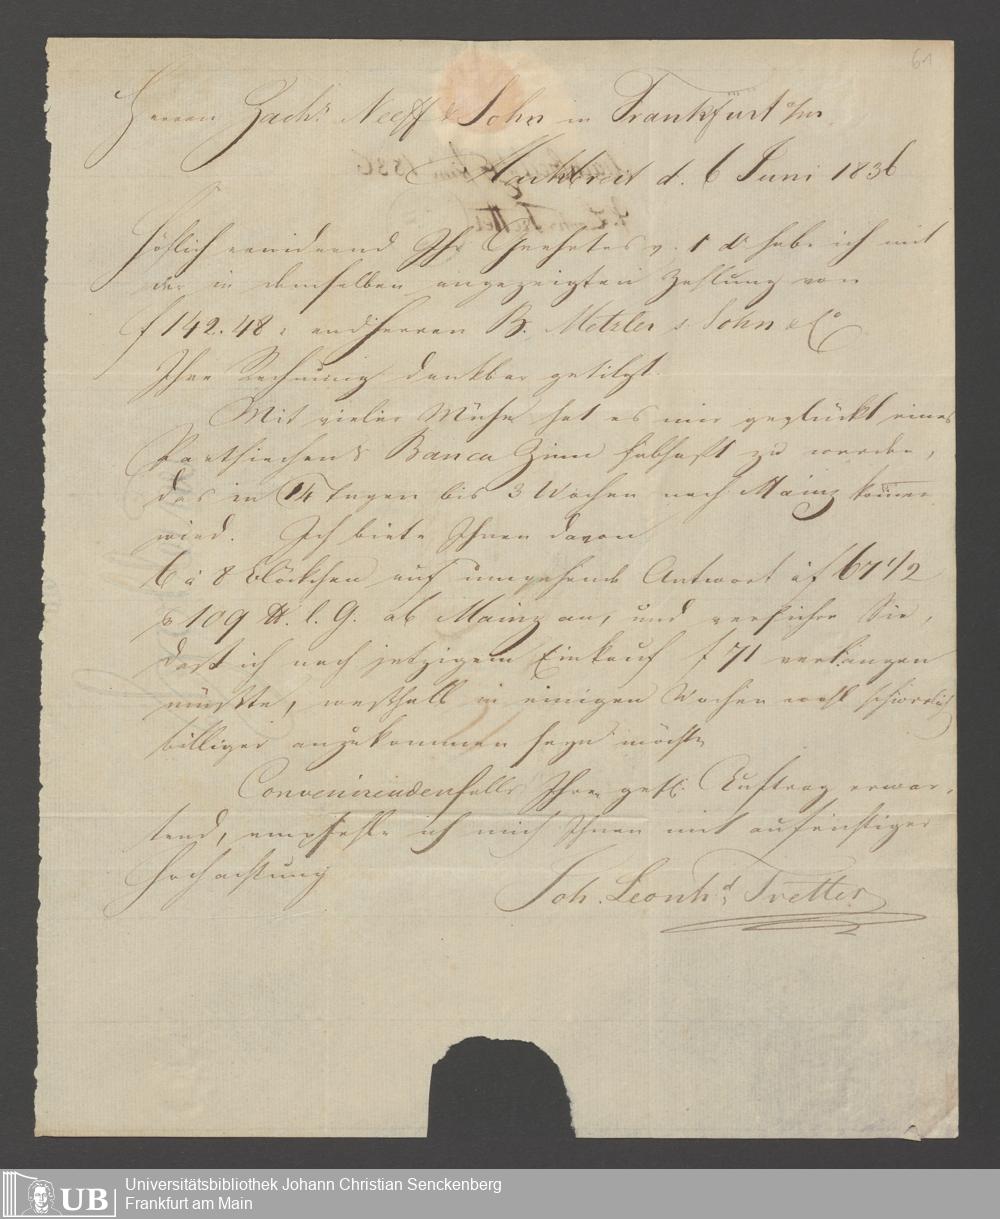 61
Herren Zach: Neeff & Sohn in Frankfurt a/m
Marktbreit d. 6 Juni 1836
Höflich erwidernd Ihr Geehrtes v. 1 ds habe ich mit
der in demselben angezeigten Zahlung von
f 142.48 Herren B. Metzler s. Sohn & Co
Ihre Rechnung dankbar getilgt.
Mit vieler Mühe hat es mir geglückt eines
Parthiechens Banca Zinn habhaft zu werden,
das in 14 Tagen bis 3 Wochen nach Mainz kommen
wird. Ich biete Ihnen davon
6 à 8 Blöckchen auf umgehende Antwort à f 67 1/2
p 109 ℔. l. G. ab Mainz an, und versichre Sie,
daß ich nach jetzigem Einkauf f 71 verlangen
müßte, weßhalb in einigen Wochen wohl schwerlich
billiger anzukommen seyn möchte
Convenirendenfalls Ihren gefl. Auftrag erwar-
tend, empfehle ich mich Ihnen mit aufrichtiger
Hochachtung
Joh. Leonhd. Tretter
UB
Universitätsbibliothek Johann Christian Senckenberg
Frankfurt am Main